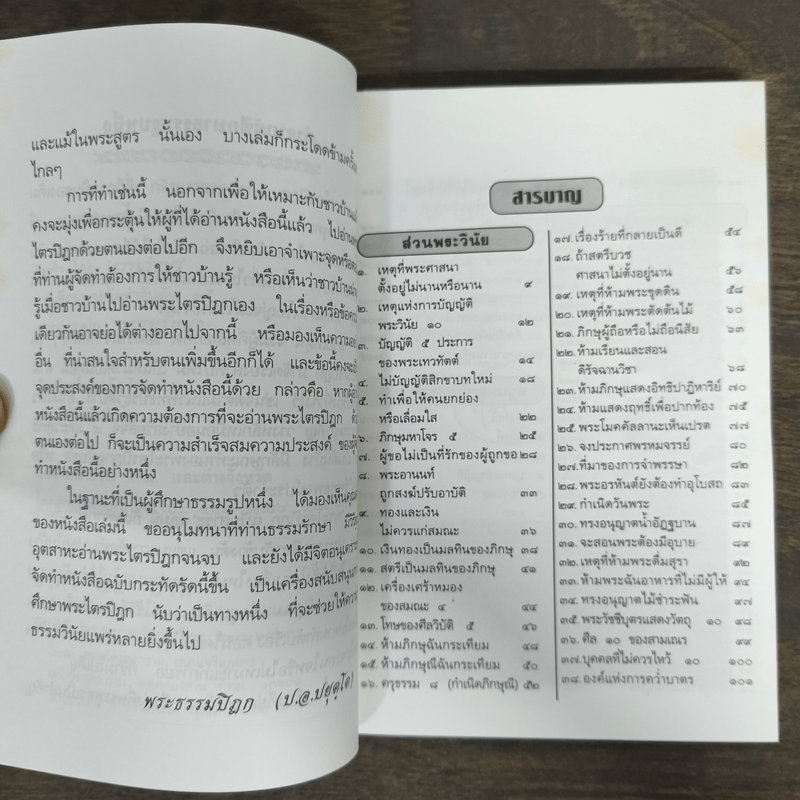 และแม้ในพระสูตร นั้นเอง บางเล่มก็กระโดดข้ามครั้ง
ไกลๆ
การที่ทำเช่นนี้ นอกจากเพื่อให้เหมาะกับชาวบ้าน
คงจะมุ่งเพื่อกระตุ้นให้ผู้ที่ได้อ่านหนังสือนี้แล้ว ไปอ่าน
ไตรปิฎกด้วยตนเองต่อไปอีก จึงหยิบเอาจำเพาะจุด
ที่ท่านผู้จัดทำต้องการให้ชาวบ้านรู้ หรือเห็นว่าชาวบ้าน
รู้เมื่อชาวบ้านไปอ่านพระไตรปิฎกเอง ในเรื่องหรือข้อ
เดียวกันอาจย่อได้ต่างออกไปจากนี้ หรือมองเห็นความ
อื่น ที่น่าสนใจสำหรับตนเพิ่มขึ้นอีกก็ได้ และข้อนี้คงจะ
จุดประสงค์ของการจัดทำหนังสือนี้ด้วย กล่าวคือ หาก
หนังสือนี้แล้วเกิดความต้องการที่จะอ่านพระไตรปิฎก
ตนเองต่อไป ก็จะเป็นความสำเร็จสมความประสงค์ ของผู้
ทำหนังสือนี้อย่างหนึ่ง
ในฐานะที่เป็นผู้ศึกษาธรรมรูปหนึ่ง ได้มองเห็นคุณ
ของหนังสือเล่มนี้ ขออนุโมทนาที่ท่านธรรมรักษา มีวิริ
อุตสาหะอ่านพระไตรปิฎกจนจบ และยังได้มีจิตอนุเคราะ
จัดทำหนังสือฉบับกระทัดรัดนี้ขึ้น เป็นเครื่องสนับสนุน
ศึกษาพระไตรปิฎก นับว่าเป็นทางหนึ่ง ที่จะช่วยให้ความ
ธรรมวินัยแพร่หลายยิ่งขึ้นไป
พระธรรมปิฎก (ป.อ.ปยุตฺโต)
สารบาญ
ส่วนพระวินัย
๑. เหตุที่พระศาสนา
ตั้งอยู่ไม่นานหรือนาน ๙
๒. เหตุแห่งการบัญญัติ
พระวินัย ๑๐ ๑๒
๓. บัญญัติ ๕ ประการ
ของพระเทวทัตต์ ๑๔
๔. ไม่บัญญัติสิกขาบทใหม่ ๑๘
๕. ทำเพื่อให้คนยกย่อง
หรือเลื่อมใส ๒๒
๖. ภิกษุมหาโจร ๕ ๒๕
๗. ผู้ขอไม่เป็นที่รักของผู้ถูกขอ ๒๘
๘. พระอานนท์
ถูกสงฆ์ปรับอาบัติ ๓๓
๙. ทองและเงิน
ไม่ควรแก่สมณะ ๓๖
๑๐. เงินทองเป็นมลทินของภิกษุ ๓๘
๑๑. สตรีเป็นมลทินของภิกษุ ๔๑
๑๒. เครื่องเศร้าหมอง
ของสมณะ ๔ ๔๔
๑๓. โทษของศีลวิบัติ ๕ ๔๖
๑๔. ห้ามภิกษุฉันกระเทียม ๔๘
๑๕. ห้ามภิกษุณีฉันกระเทียม ๕๐
๑๖. ครุธรรม ๘ (กำเนิดภิกษุณี) ๕๒
๑๗. เรื่องร้ายที่กลายเป็นดี ๕๔
๑๘. ถ้าสตรีบวช
ศาสนาไม่ตั้งอยู่นาน ๕๖
๑๙. เหตุที่ห้ามพระขุดดิน ๕๘
๒๐. เหตุที่ห้ามพระตัดต้นไม้ ๖๐
๒๑. ภิกษุผู้ถือหรือไม่ถือนิสัย ๖๓
๒๒. ห้ามเรียนและสอน
ดิรัจฉานวิชา ๖๘
๒๓. ห้ามภิกษุแสดงอิทธิปาฏิหาริย์ ๗๐
๒๔. ห้ามแสดงฤทธิ์เพื่อปากท้อง ๗๕
๒๕. พระโมคคัลลานะเห็นเปรต ๗๗
๒๖. จงประกาศพรหมจรรย์ ๘๐
๒๗. ที่มาของการจำพรรษา ๘๒
๒๘. พระอรหันต์ยังต้องทำอุโบสถ
๒๙. กำเนิดวันพระ ๘๕
๓๐. ทรงอนุญาตน้ำอัฏฐบาน ๘๗
๓๑. จะสอนพระต้องมีอุบาย ๘๙
๓๒. เหตุที่ห้ามพระดื่มสุรา ๙๒
๓๓. ห้ามพระฉันอาหารที่ไม่มีผู้ให้ ๙๔
๓๔. ทรงอนุญาตไม้ชำระฟัน ๙๗
๓๕. พระวัชชีบุตรแสดงวัตถุ ๑๐ ๙๘
๓๖. ศีล ๑๐ ของสามเณร ๙๙
๓๗. บุคคลที่ไม่ควรไหว้ ๑๐ ๑๐๐
๓๘. องค์แห่งการคว่ำบาตร ๑๐๑